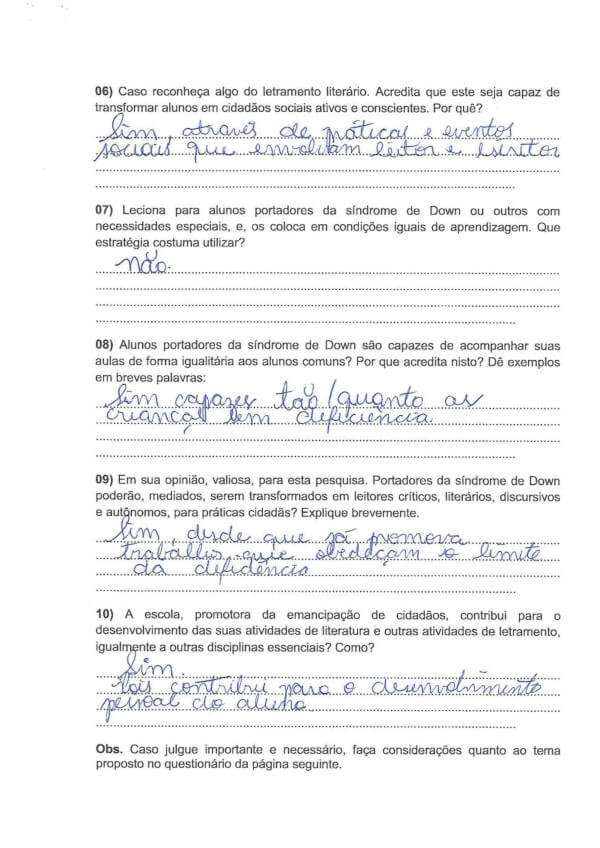 06) Caso reconheça algo do letramento literário. Acredita que este seja capaz de
transformar alunos em cidadãos sociais ativos e conscientes. Por quê?
Sim, através de práticas e eventos
sociais que envolviam leitor e escritor
07) Leciona para alunos portadores da síndrome de Down ou outros com
necessidades especiais, e, os coloca em condições iguais de aprendizagem. Que
estratégia costuma utilizar?
Não.
08) Alunos portadores da síndrome de Down são capazes de acompanhar suas
aulas de forma igualitária aos alunos comuns? Por que acredita nisto? Dê exemplos
em breves palavras:
Sim capazes tão/quanto as
crianças sem deficiência
09) Em sua opinião, valiosa, para esta pesquisa. Portadores da síndrome de Down
poderão, mediados, serem transformados em leitores críticos, literários, discursivos
e autônomos, para práticas cidadãs? Explique brevemente.
Sim, desde que promova
trabalhos que obedeçam o limite
da deficiência
10) A escola, promotora da emancipação de cidadãos, contribui para o
desenvolvimento das suas atividades de literatura e outras atividades de letramento,
igualmente a outras disciplinas essenciais? Como?
Sim.
Pois contribui para o desenvolvimento
pessoal do aluno
Obs. Caso julgue importante e necessário, faça considerações quanto ao tema
proposto no questionário da página seguinte.